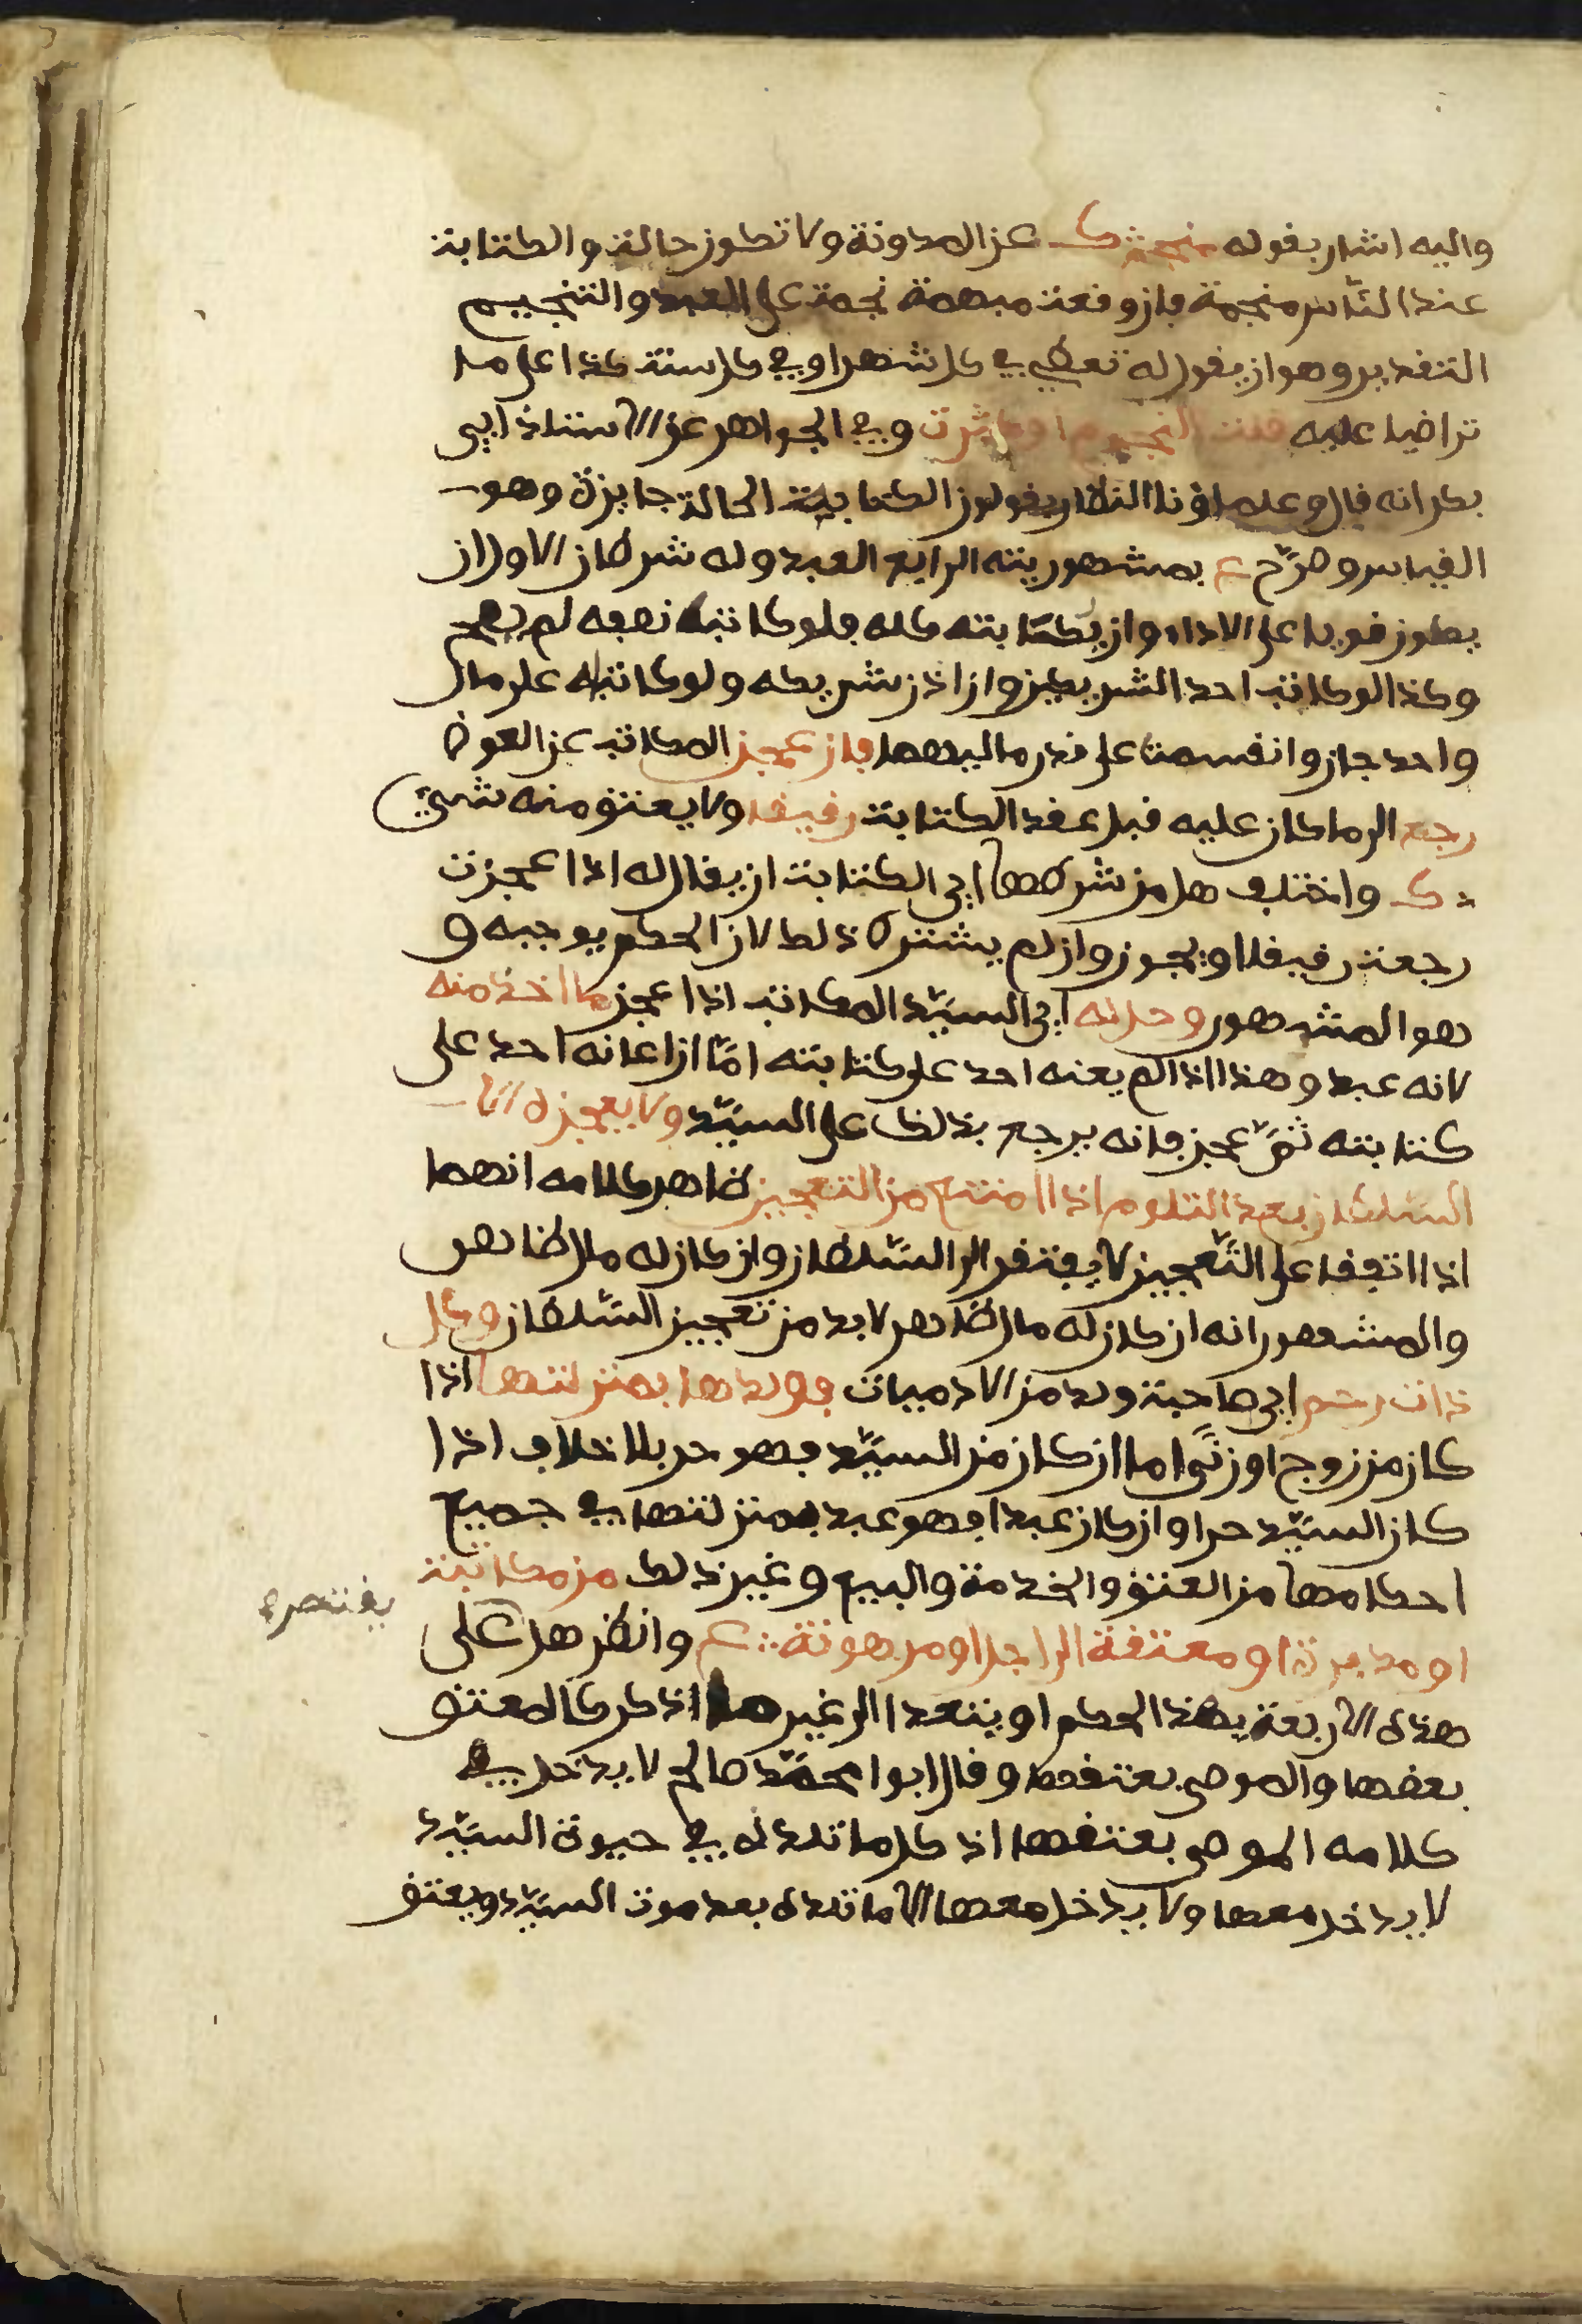 واليه اشار بقوله منجمة ك عن المدونة ولا تكون حالة والكتابة
عند الناس منجمة فان وقعت مبهمة نجمت على العبد والتنجيم
التقدير وهو ان يقول له تعطي في كل شهر او في كل سنة كذا على ما
تراضيا عليه قلت النجوم او كثرت وفي الجواهر عن الاستاذ ابي
بكر انه قال وعلماؤنا النظار يقولون الكتابة الحالة جايزة وهو
القياس وصرّح ع بمشهوريته الرابع العبد وله شرطان الاول ان
يكون قويا على الاداء وان يكتابته كله فلو كاتبه نصفه لم يصح
وكذا لو كاتب احد الشريكين وان اذن شريكه ولو كاتباه على مال
واحد جاز وانقسمت على قدر ماليهما فان عجز المكاتب عن العوض
رجع الى ما كان عليه قبل عقد الكتابة رقيقا ولا يعتق منه شيئ
ك واختلف هل من شرطها اي الكتابة ان يقال له اذا عجزت
رجعت رقيقا او يجوز وان لم يشترط ذلك لان الحكم يوجبه و
هو المشهور وحل له اي السيّد المكاتب اذا عجز ما اخذ منه
لانه عبد وهذا اذا لم يعنه احد على كتابته امّا ان اعانه احد على
كتابته ثمّ عجز فانه يرجع بذلك على السيّد ولا يعجزه الا
السلطان بعد التلوم اذا امتنع من التعجيز ظاهر كلامه انهما
اذا اتفقا على التّعجيز لا يفتقر الى السّلطان وان كان له مال ظاهر
والمشهور انه ان كان له مال ظاهر لا بد من تعجيز السّلطان وكل
ذات رحم اي صاحبة ولد من الادميات فولدها بمنزلتها اذا
كان من زوج او زنًى اما ان كان من السيّد فهو حر بلا خلاف اذا
كان السيّد حرا وان كان عبدا فهو عبد بمنزلتها في جميع
احكامها من العتق والخدمة والبيع وغير ذلك من مكاتبة
او مدبرة او معتقة الى اجل او مرهونة ع وانظر هل على
يقتصر
هذه الاربعة بهذا الحكم او يتعدا الى غير ما ذكر كالمعتق
بعضها والموصى بعتقها وقال ابوا محمّد صالح لا يدخل في
كلامه الموصى بعتقها اذ كل ما تلده في حيوة السيّد
لا يدخل معها ولا يدخل معها الا ما تلده بعد موت السيّد ويعتق